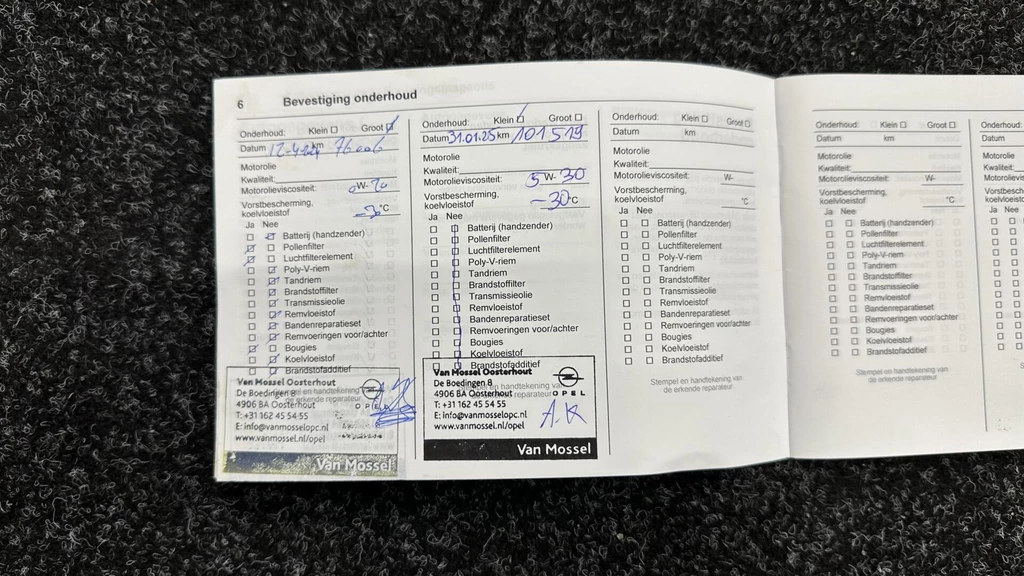 6 Bevestiging onderhoud
Onderhoud: Klein Groot
Datum 12-4-24 km 76006
Motorolie
Kwaliteit:
Motorolieviscositeit: 0W-20
Vorstbescherming,
koelvloeistof -30 °C
Ja Nee
Batterij (handzender)
Pollenfilter
Luchtfilterelement
Poly-V-riem
Tandriem
Brandstoffilter
Transmissieolie
Remvloeistof
Bandenreparatieset
Remvoeringen voor/achter
Bougies
Koelvloeistof
Brandstofadditief
Van Mossel Oosterhout
De Boedingen 8
4906 BA Oosterhout
T: +31 162 45 54 55
E: info@vanmosselopc.nl
www.vanmossel.nl/opel
OPEL
Van Mossel
Onderhoud: Klein Groot
Datum 31.01.25 km 101519
Motorolie
Kwaliteit:
Motorolieviscositeit: 5W-30
Vorstbescherming,
koelvloeistof -30°C
Ja Nee
Batterij (handzender)
Pollenfilter
Luchtfilterelement
Poly-V-riem
Tandriem
Brandstoffilter
Transmissieolie
Remvloeistof
Bandenreparatieset
Remvoeringen voor/achter
Bougies
Koelvloeistof
Brandstofadditief
Van Mossel Oosterhout
De Boedingen 8
4906 BA Oosterhout
T: +31 162 45 54 55
E: info@vanmosselopc.nl
www.vanmossel.nl/opel
OPEL
A.K
Van Mossel
Onderhoud: Klein Groot
Datum km
Motorolie
Kwaliteit:
Motorolieviscositeit: W-
Vorstbescherming,
koelvloeistof °C
Ja Nee
Batterij (handzender)
Pollenfilter
Luchtfilterelement
Poly-V-riem
Tandriem
Brandstoffilter
Transmissieolie
Remvloeistof
Bandenreparatieset
Remvoeringen voor/achter
Bougies
Koelvloeistof
Brandstofadditief
Stempel en handtekening van
de erkende reparateur
Onderhoud: Klein Groot
Datum km
Motorolie
Kwaliteit:
Motorolieviscositeit: W-
Vorstbescherming,
koelvloeistof °C
Ja Nee
Batterij (handzender)
Pollenfilter
Luchtfilterelement
Poly-V-riem
Tandriem
Brandstoffilter
Transmissieolie
Remvloeistof
Bandenreparatieset
Remvoeringen voor/achter
Bougies
Koelvloeistof
Brandstofadditief
Stempel en handtekening van
de erkende reparateur
Onderhoud:
Datum
Motorolie
Kwaliteit:
Ja Nee